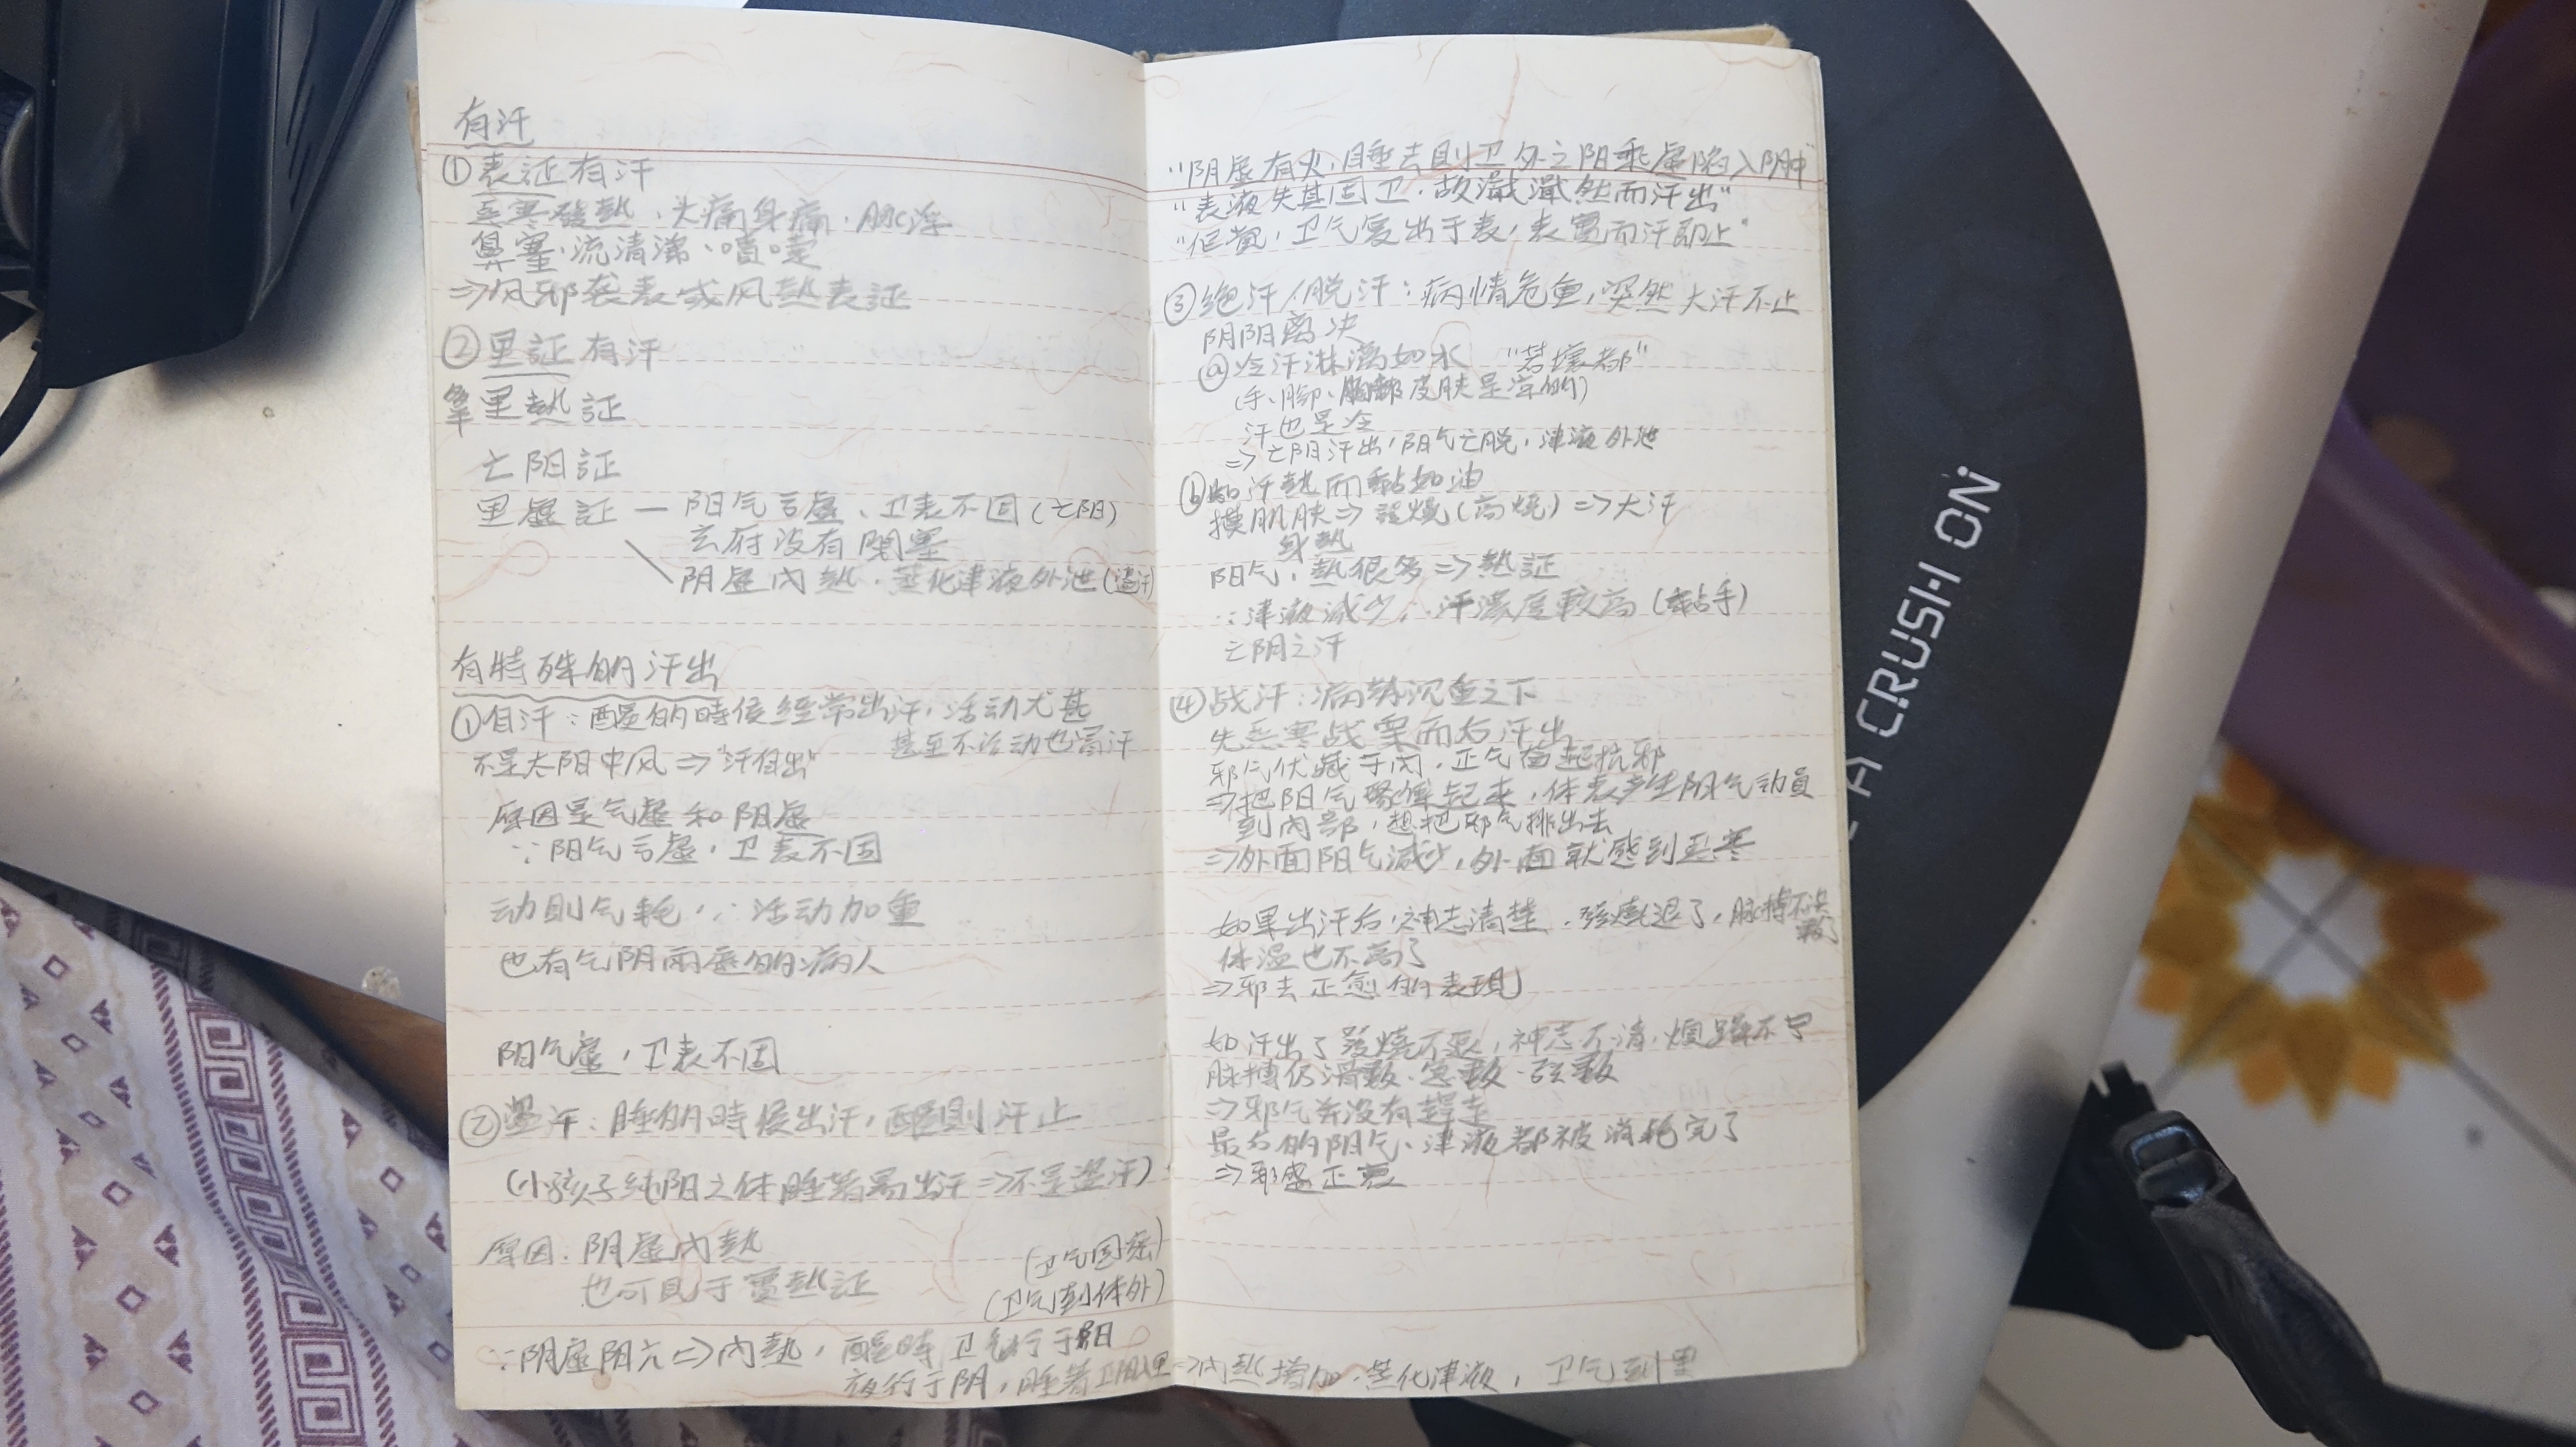 有汗
①表証有汗
恶寒發熱、头痛身痛、脉浮
鼻塞、流清涕、噴嚏
⇒风邪袭表或风熱表証
②里証有汗
里熱証
亡阳証
里虚証 — 阳气亏虚、卫表不固(亡阳)
玄府没有閉塞
阴虚内熱、蒸化津液外泄(盗汗)
有特殊的汗出
①自汗:醒的時候經常出汗,活动尤甚
甚至不活动也冒汗
不是太阳中风⇒"汗自出"
原因是气虚和阳虚
∵阳气亏虚,卫表不固
动則气耗,∴活动加重
也有气阴兩虚的病人
阳气虚,卫表不固
②盗汗:睡的時候出汗,醒則汗止
(小孩子纯阳之体睡着易出汗⇒不是盗汗)
原因:阴虚内熱
也可見于實熱証
(卫气固)
(卫气到体外)
∵阴虚阳亢⇒内熱,醒時卫气行于阳
夜行于阴,睡着卫阳入里⇒内熱增加,蒸化津液,卫气到里
"阴虚有火,睡去則卫外之阳乘虚陷入阴中"
"表液失其固卫,故濈濈然而汗出"
卫气复出于表,表實而汗即止"
③绝汗/脱汗:病情危重,突然大汗不止
阴阳离决
ⓐ冷汗淋漓如水 "若壞都"
(手、腳、胸部皮肤是凉的)
汗也是冷
⇒亡阳汗出,阳气亡脱,津液外泄
ⓑ如汗熱而黏如油
摸肌肤⇒發燒(高燒)⇒大汗
身熱
阳气,熱很多⇒熱証
∵津液减少,∴汗濃度較高(黏手)
亡阴之汗
④战汗:病势沉重之下
先恶寒战栗而后汗出
邪气伏藏于内,正气奋起抗邪
⇒把阳气聚集起来,体表产生阳气动員
到内部,想把邪气排出去
⇒外面阳气减少,外面就感到恶寒
如果出汗后,神志清楚,發燒退了,脉搏不快
体温也不高了
⇒邪去正愈的表現
如汗出了發燒不退,神志不清,煩躁不宁
脉搏仍滑數、急數、弦數
⇒邪气并没有趕走
最后的阳气、津液都被消耗完了
⇒邪盛正衰
A CRUSH ON